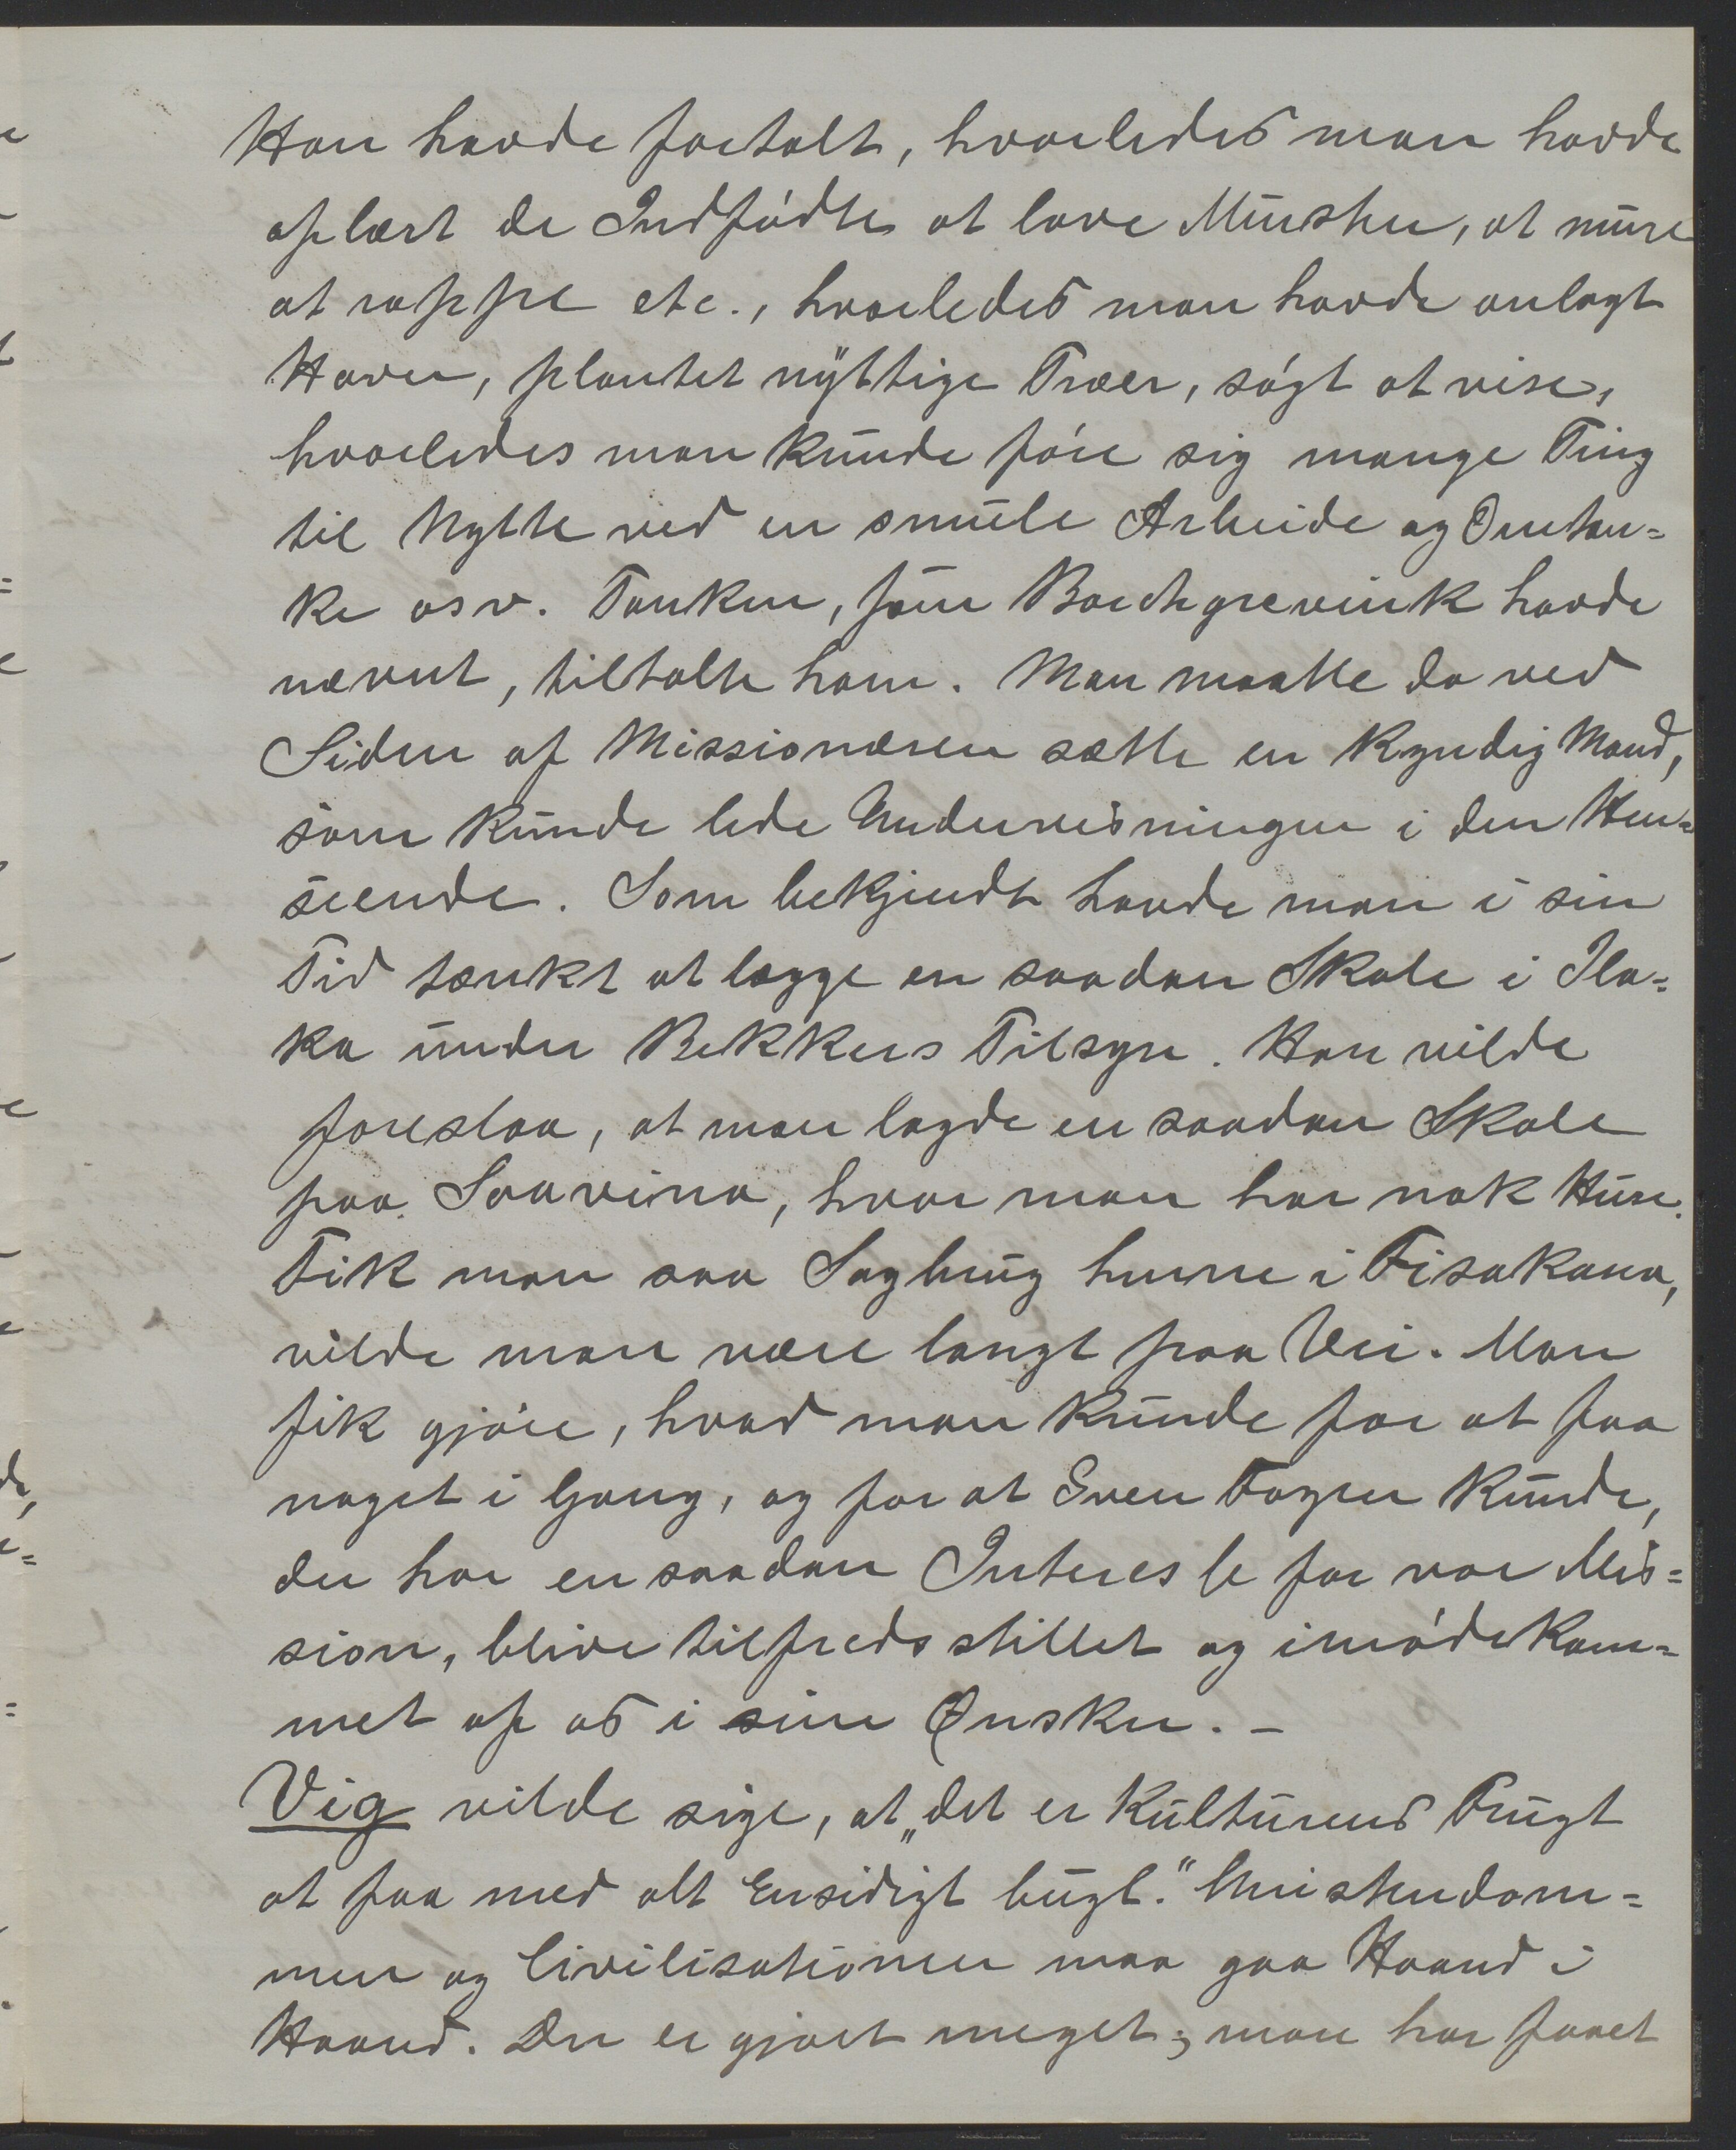 Han havde fortalt, hvorledes man havde
oplært de Indfødte at lave Mursten, at mure
at rappe etc., hvorledes man havde anlagt
Haver, plantet nyttige Træer, søgt at vise,
hvorledes man kunde føre sig mange Ting
til Nytte ved en smule Arbeide og Omtan=
ke osv. Tanken, som Borchgrevink havde
nævnt, tiltalte ham. Man maatte da ved
Siden af Missionæren sætte en kyndig Mand,
som kunde lede Undervisningen i den Hen=
seende. Som bekjendt havde man i sin
Tid tænkt at lægge en saadan Skole i Ila=
ka under Bekkers Tilsyn. Han vilde
foreslaa, at man lagde en saadan Skole
paa Soavina, hvor man har nok Huse.
Fik man saa Sagbrug henne i Fisakana,
vilde man være langt paa Vei. Man
fik gjøre, hvad man kunde for at faa
noget i Gang, og for at Sven Foyn kunde,
der har en saadan Interesse for vor Mis=
sion, blive tilfredsstillet og imødekom=
met af os i sine Ønsker. –
Vig vilde sige, at „det er Kulturens Frugt
at faa med alt Ensidigt bugt.“ Kristendom=
men og Civilisationen maa gaa Haand i
Haand. Der er gjort meget; man har faaet